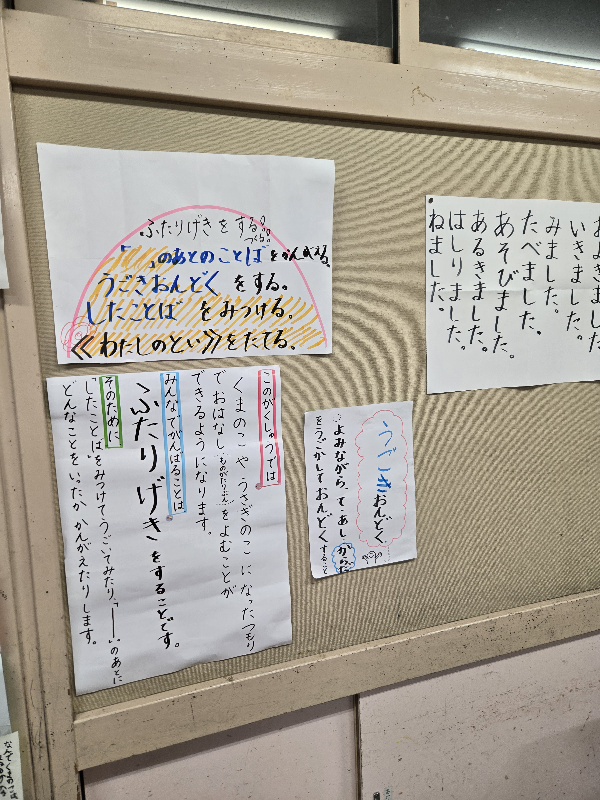 ふたりげきをする。
つくる。
「 」のあとのことばをかんがえる。
うごきおんどくをする。
したことばをみつける。
≪わたしのとい≫をたてる。
いきました。
みました。
たべました。
あそびました。
あるきました。
はしりました。
ねました。
このがくしゅうでは
くまのこやうさぎのこになったつもり
でおはなし(ものがたりぶん)をよむことが
できるようになります。
みんなでがんばることは
ふたりげきをすることです。
そのために
したことばをみつけてうごいてみたり、「――」のあとに
どんなことをいったかかんがえたりします。
うごきおんどく
よみながら、て・あし・からだ
をうごかしておんどくすること